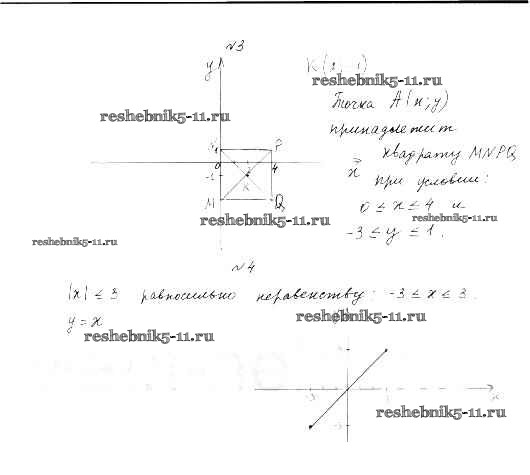 №3
y
reshebnik5-11.ru
Точка A(x; y)
reshebnik5-11.ru
принадлежит
P
0
4
x
квадрату MNPQ
-1
K
при условии:
M
Q
0 ≤ x ≤ 4 и
reshebnik5-11.ru
reshebnik5-11.ru
-3 ≤ y ≤ 1.
reshebnik5-11.ru
№4
|x| ≤ 3 равносильно неравенству: -3 ≤ x ≤ 3.
y = x
reshebnik5-11.ru
reshebnik5-11.ru
x
reshebnik5-11.ru